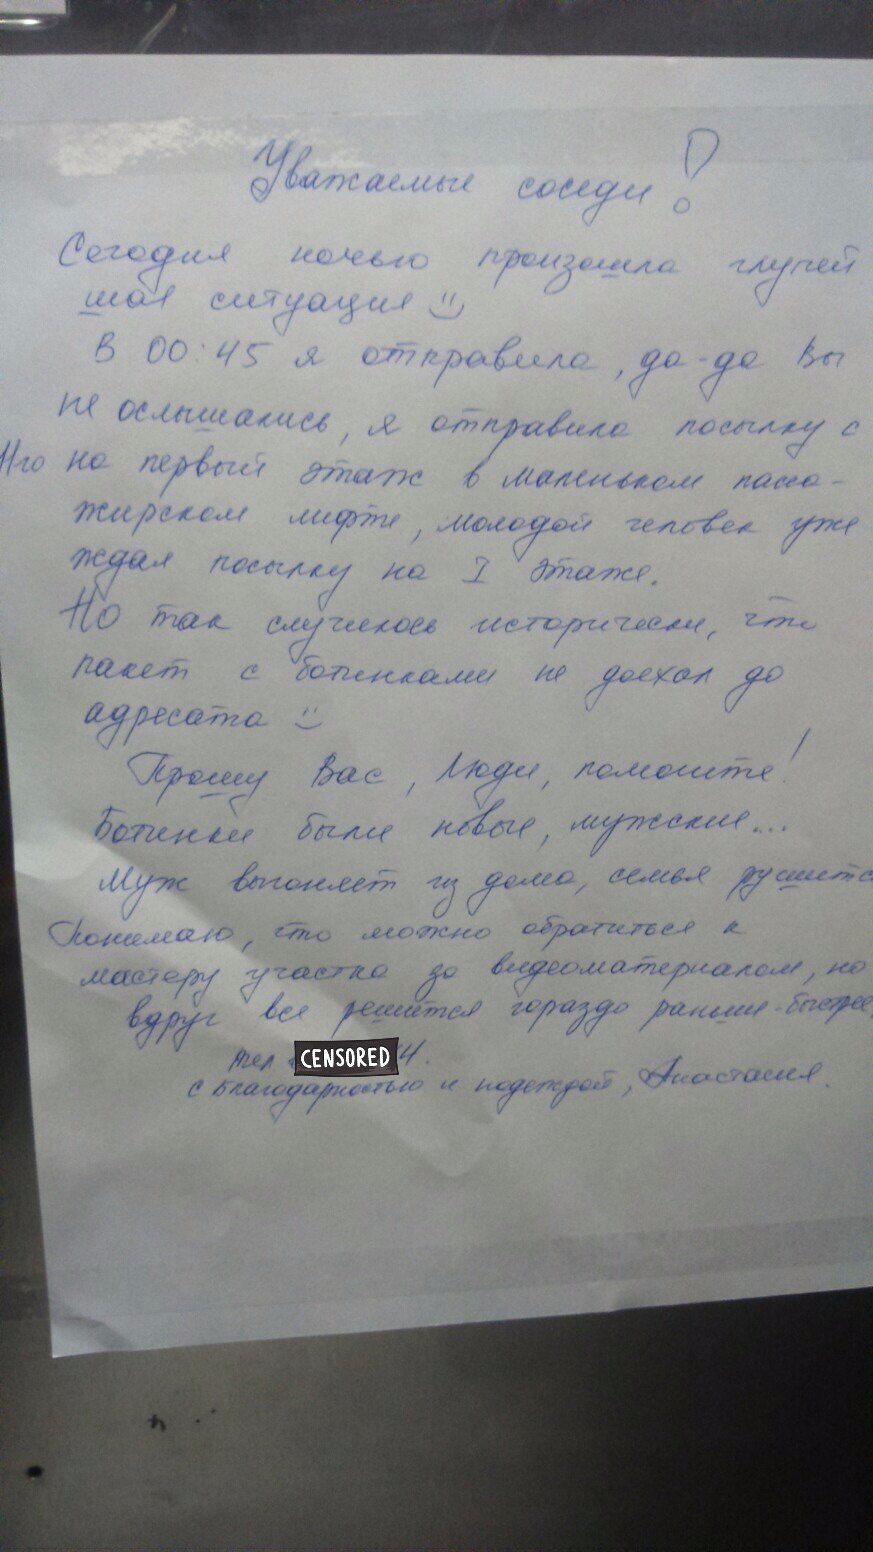 Уважаемые соседи!
Сегодня ночью произошла глупей
шая ситуация
В 00:45 я отправила, да-да Вы
не ослышались, я отправила посылку с
11го на первый этаж в маленьком пасса-
жирском лифте, молодой человек уже
ждал посылку на I этаже.
Но так случилось исторически, что
пакет с ботинками не доехал до
адресата
Прошу Вас, Люди, помогите!
Ботинки были новые, мужские...
Муж выгоняет из дома, семья рушится
Понимаю, что можно обратиться к
мастеру участка за видеоматериалом, но
вдруг все решится гораздо раньше-быстрее,
тел CENSORED 4.
с Благодарностью и надеждой, Анастасия.